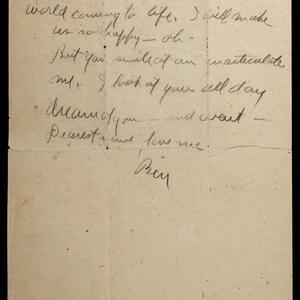 world coming to life. I will make
us so happy — oh —
But you smile at an inarticulate
me. I look at you all day
dream of you — and want —
Dearest mine, love me.
Ben